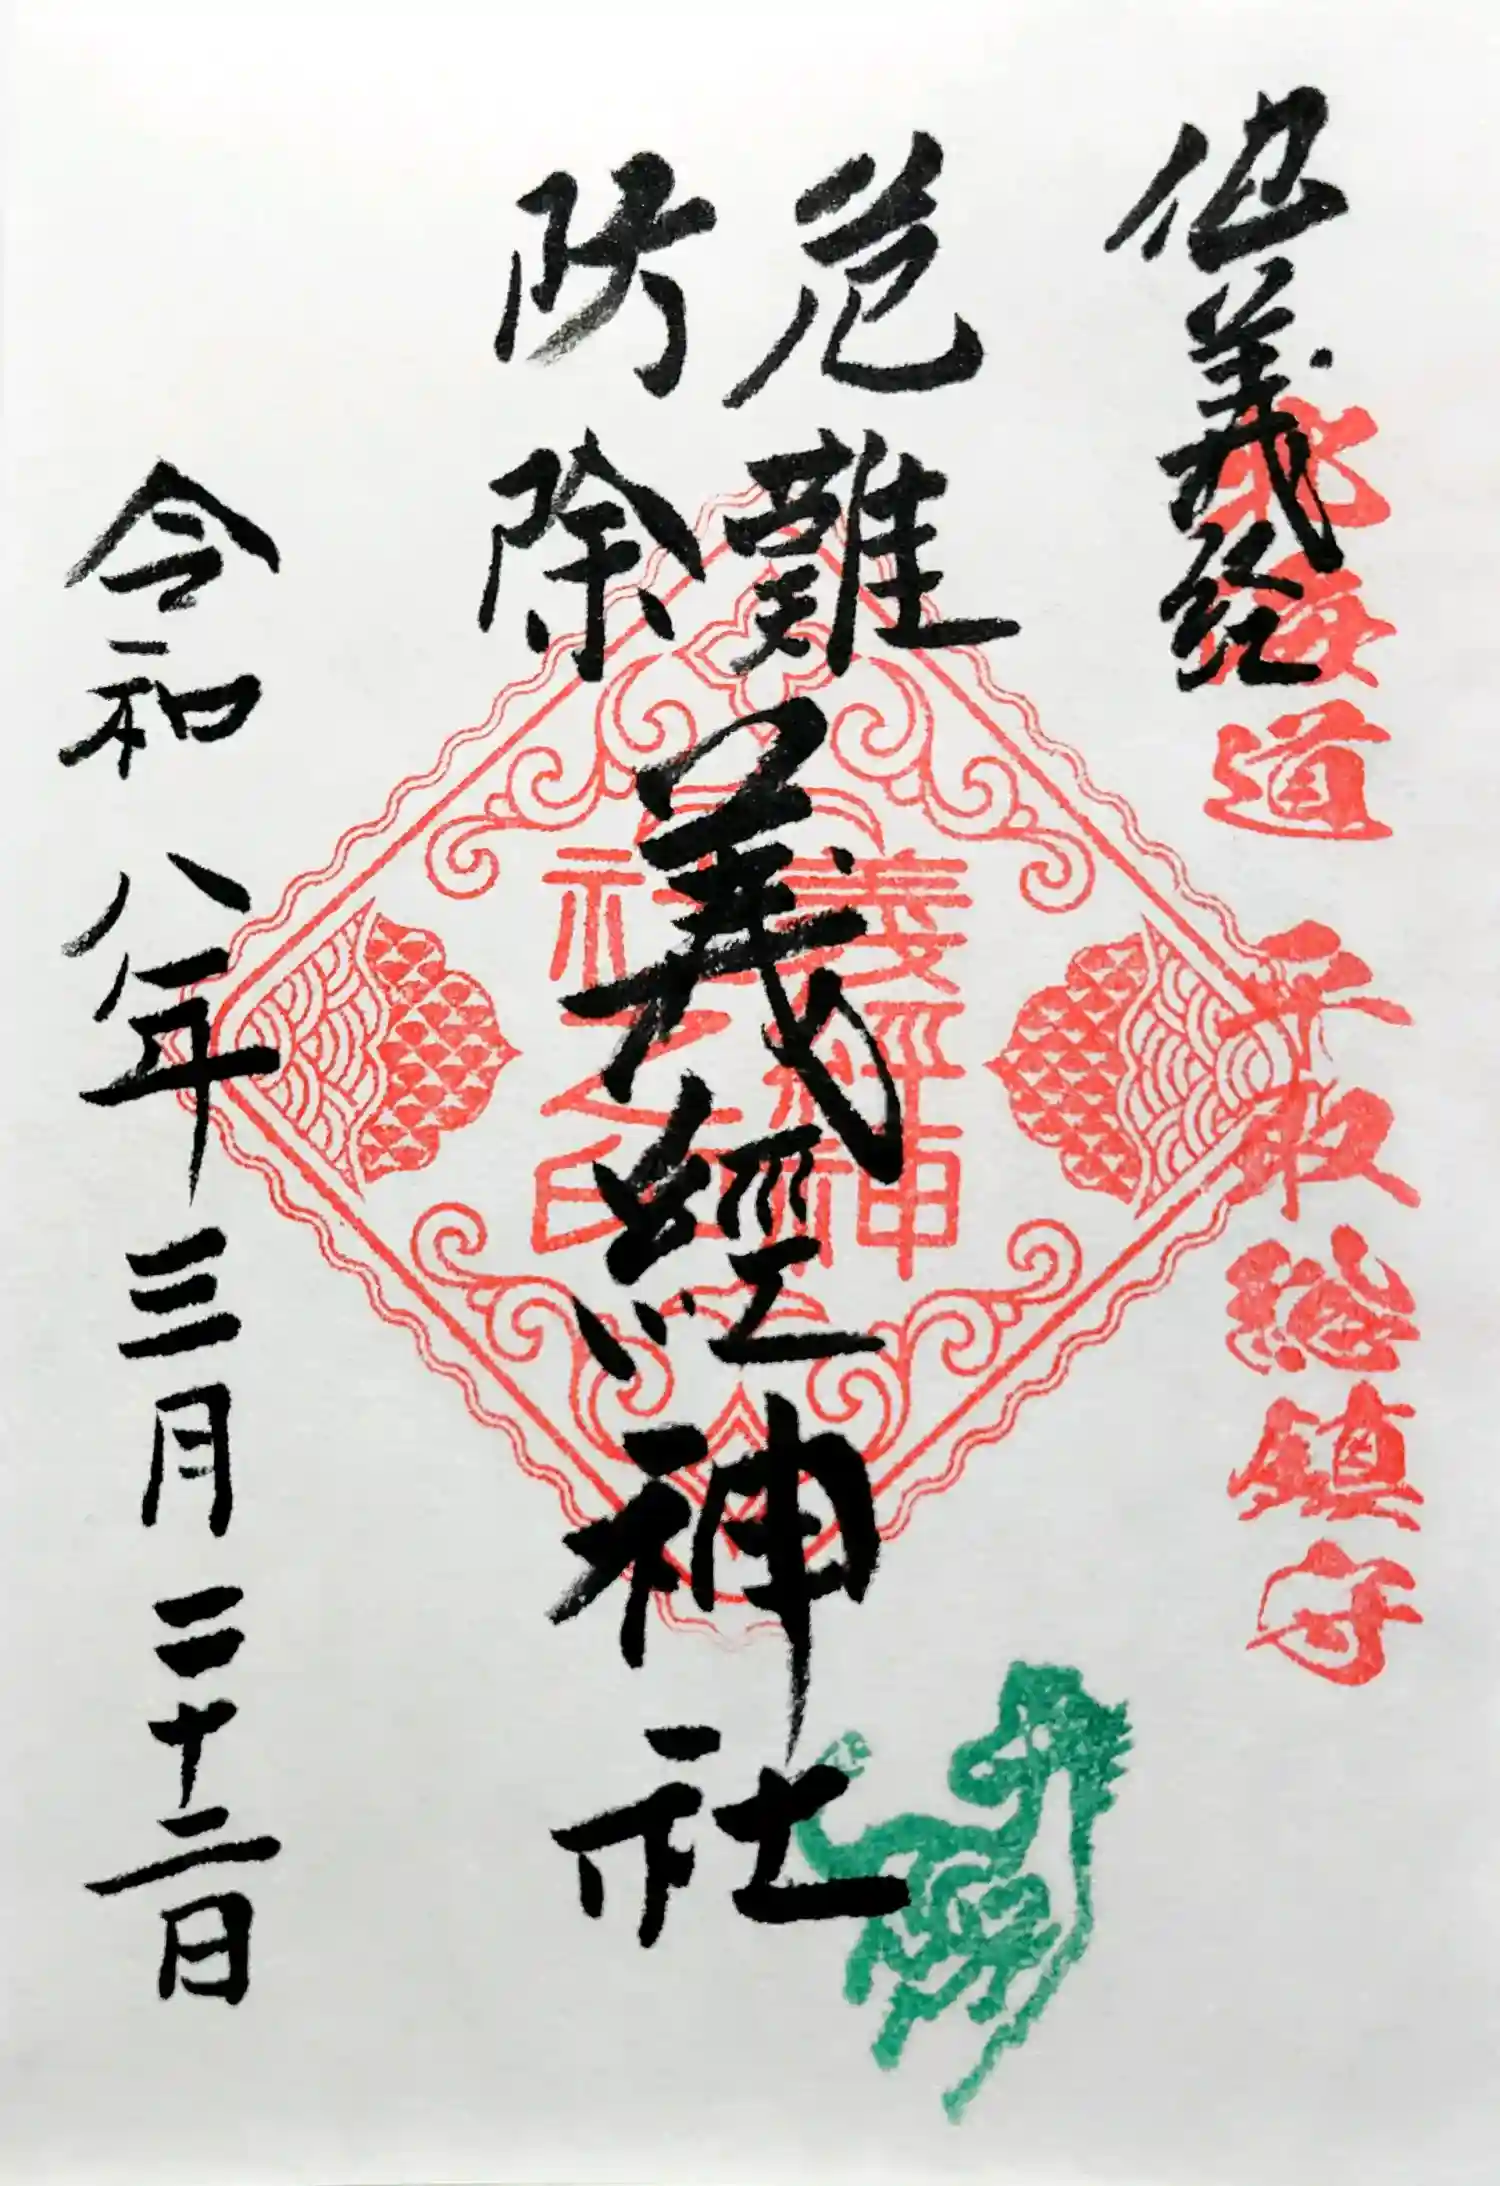 義経
北海道 平取総鎮守
危難
防除
義經神社
義經神
社之印
令和八年三月二十二日